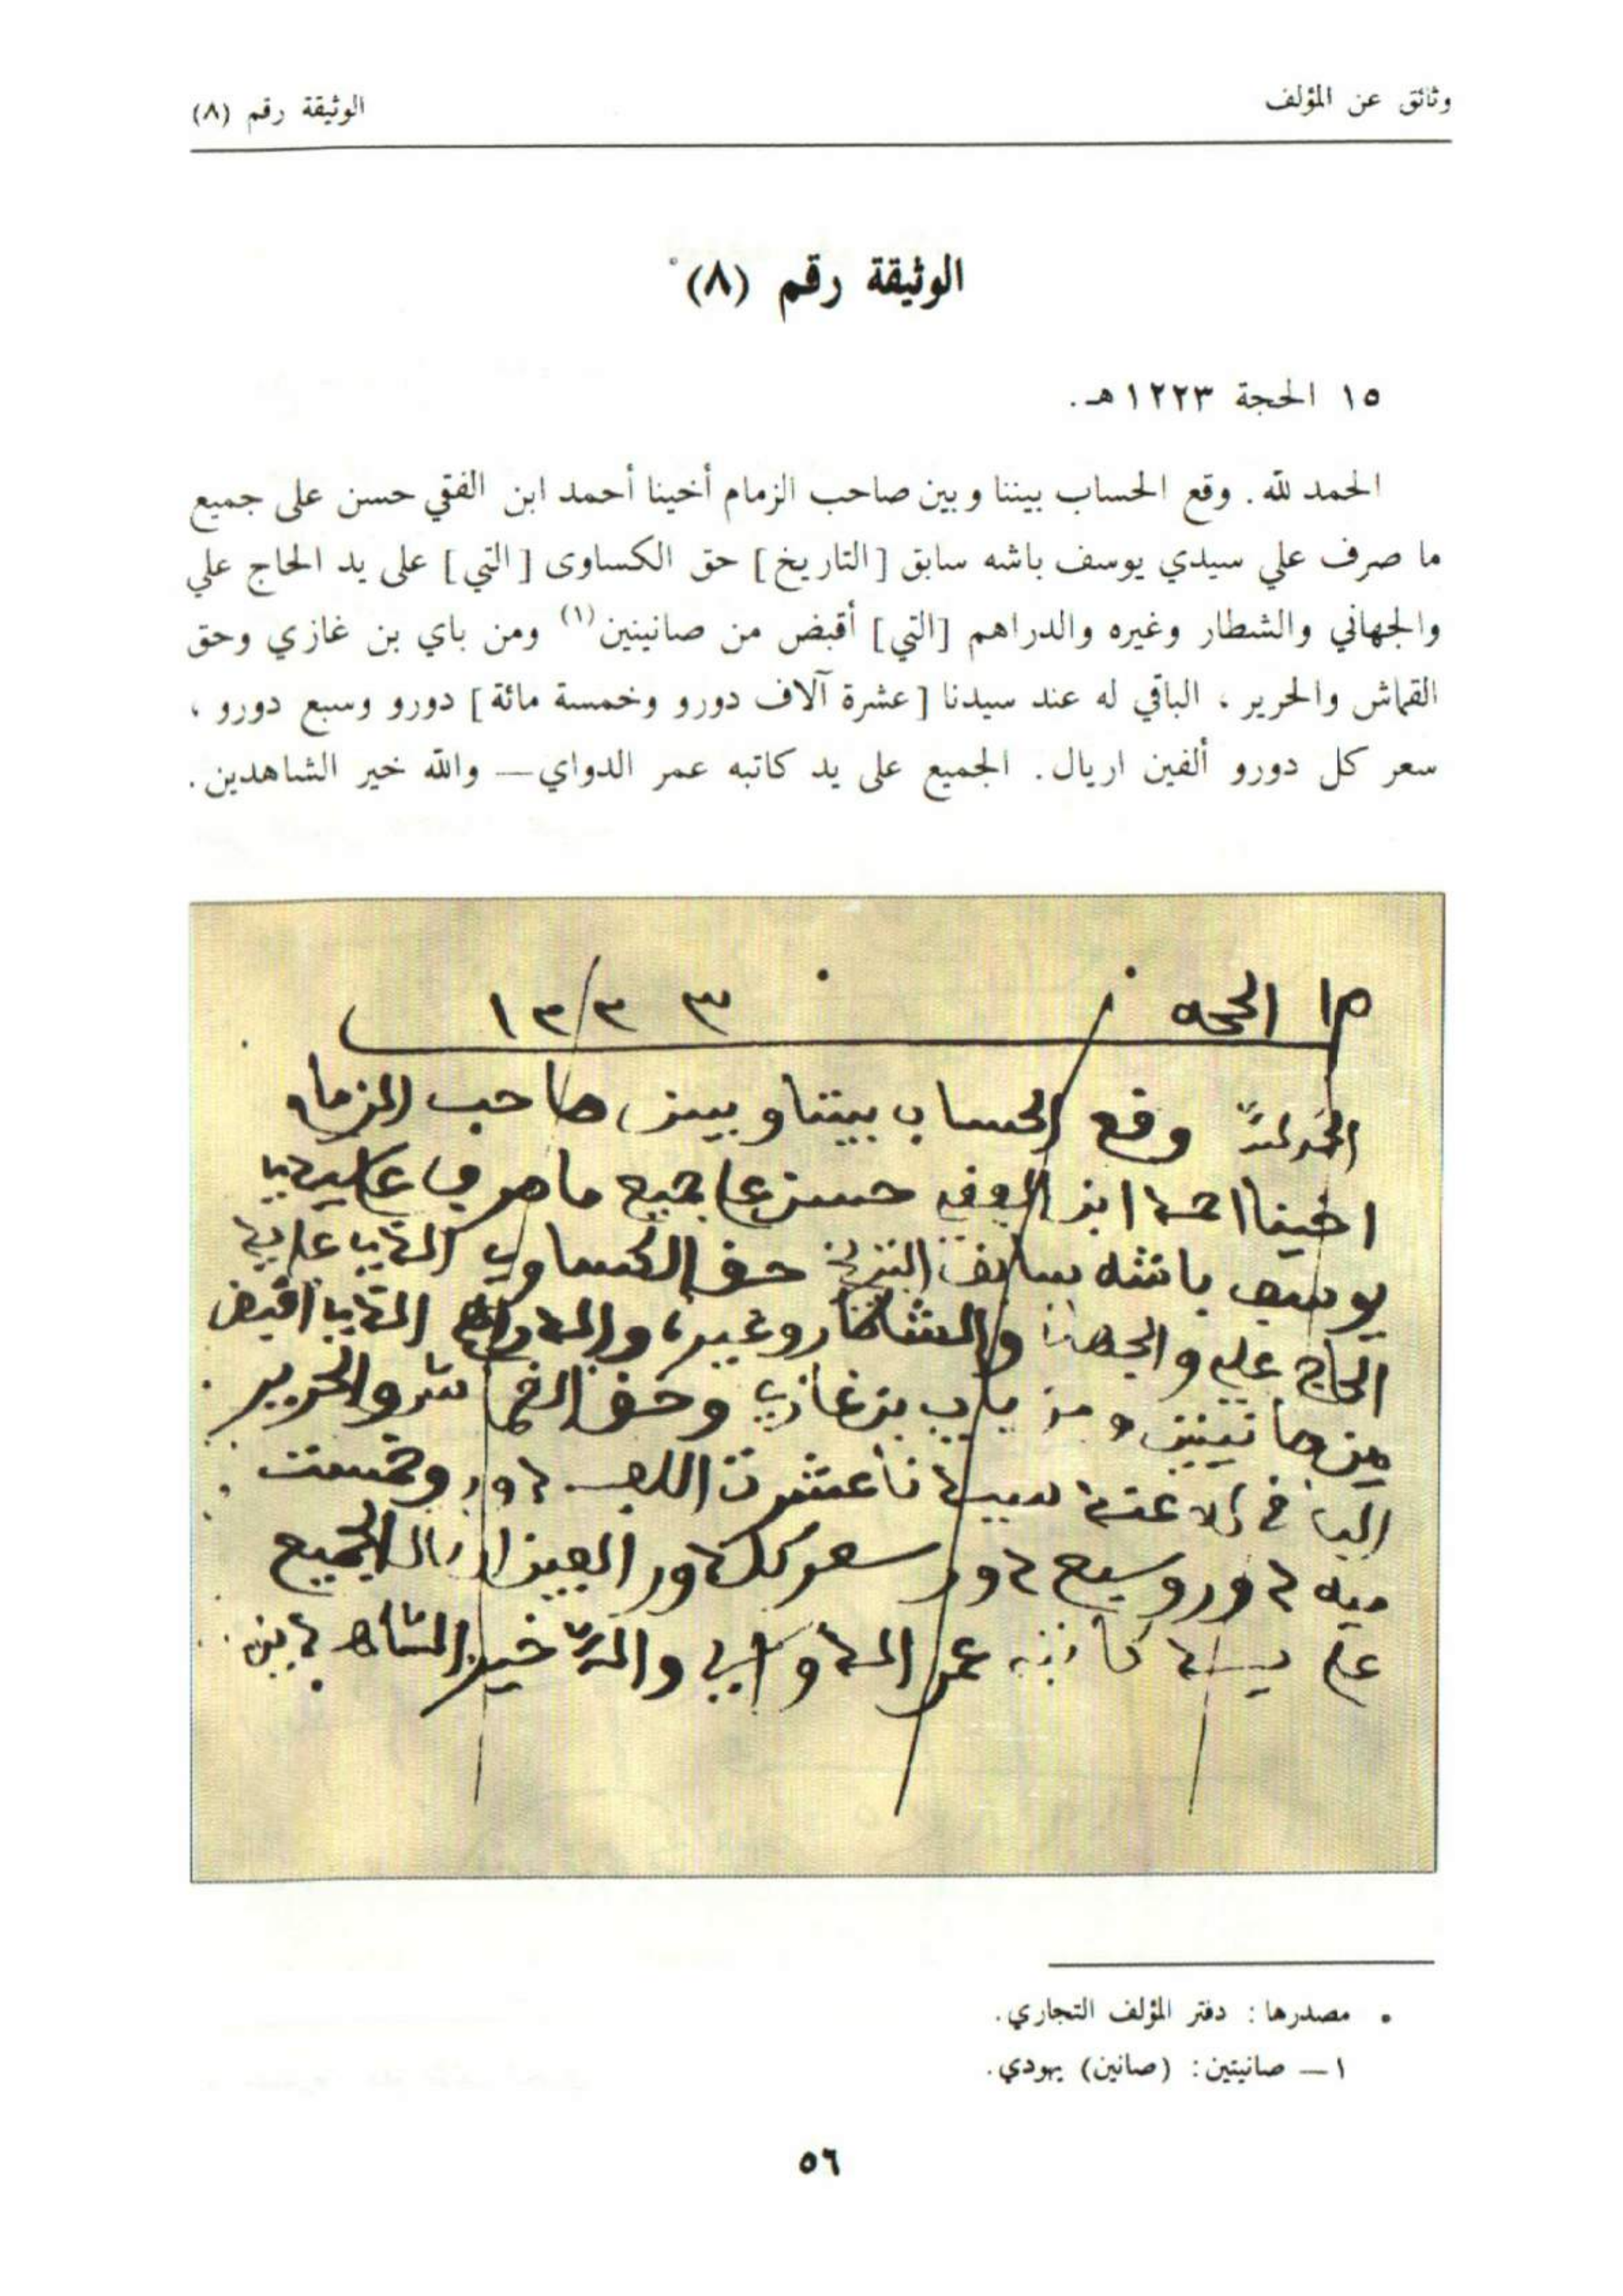 وثائق عن المؤلف
الوثيقة رقم (٨)
الوثيقة رقم (٨)*
١٥ الحجة ١٢٢٣هـ.
الحمد لله. وقع الحساب بيننا وبين صاحب الزمام أخينا أحمد ابن الفقي حسن على جميع
ما صرف علي سيدي يوسف باشه سابق [التاريخ] حق الكساوى [التي] على يد الحاج علي
والجهاني والشطار وغيره والدراهم [التي] أقبض من صانينين(١) ومن باي بن غازي وحق
القماش والحرير ، الباقي له عند سيدنا [عشرة آلاف دورو وخمسة مائة] دورو وسبع دورو ،
سعر كل دورو ألفين اريال. الجميع على يد كاتبه عمر الدواي — والله خير الشاهدين.
١٥ الحجه ١٢٢٣
الحمد لله وقع الحساب بيننا وبين صاحب الزمام
اخينا احمد ابن الفقي حسن على جميع ما صرف علي سيدي
يوسف باشه سابق التريخ حق الكساوي الذي على يد
الحاج علي والجهاني والشطار وغيره والدراهم الذي اقبض
من صانينين ومن باي بن غازي وحق القماش والحرير
الباقي له عند سيدنا عشرت الاف دورو وخمست
ميه دورو وسبع دورو سعر كل دورو الفين اريال الجميع
على يد كاتبه عمر الدواي والله خير الشاهدين
* مصدرها : دفتر المؤلف التجاري.
١ — صانيتين : (صانين) يهودي.
٥٦